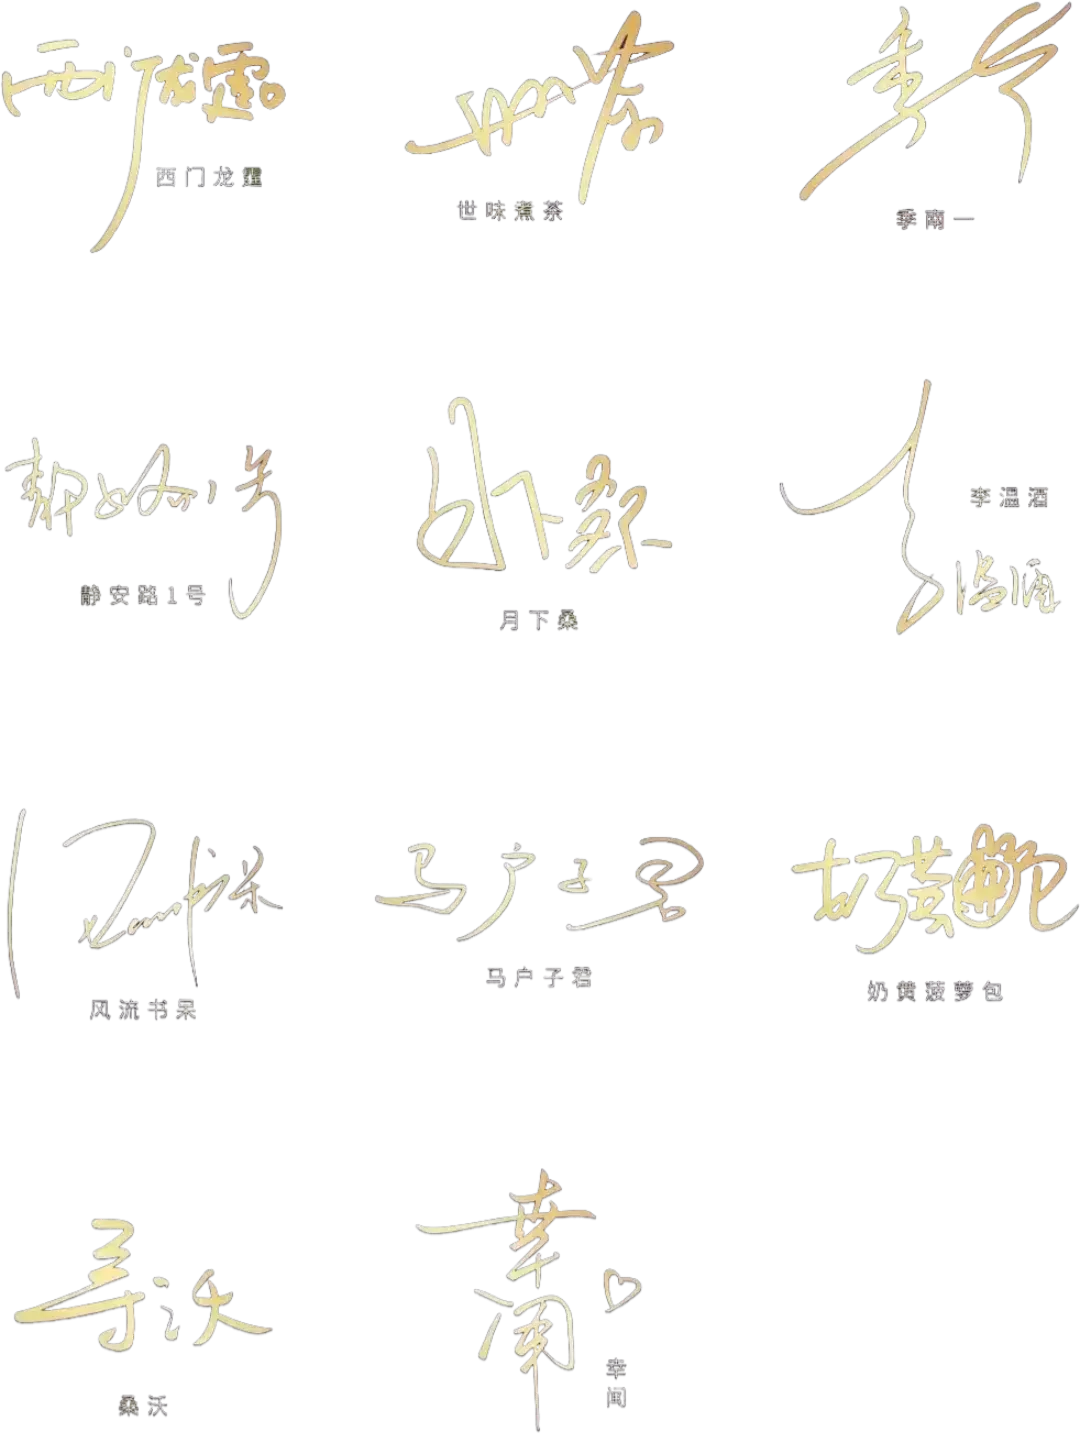 西门龙霆
西门龙霆
世味煮茶
世味煮茶
季南一
季南一
静安路1号
静安路1号
月下桑
月下桑
李温酒
李温酒
风流书呆
风流书呆
马户子君
马户子君
奶黄菠萝包
奶黄菠萝包
寻沃
桑沃
幸闻
幸闻